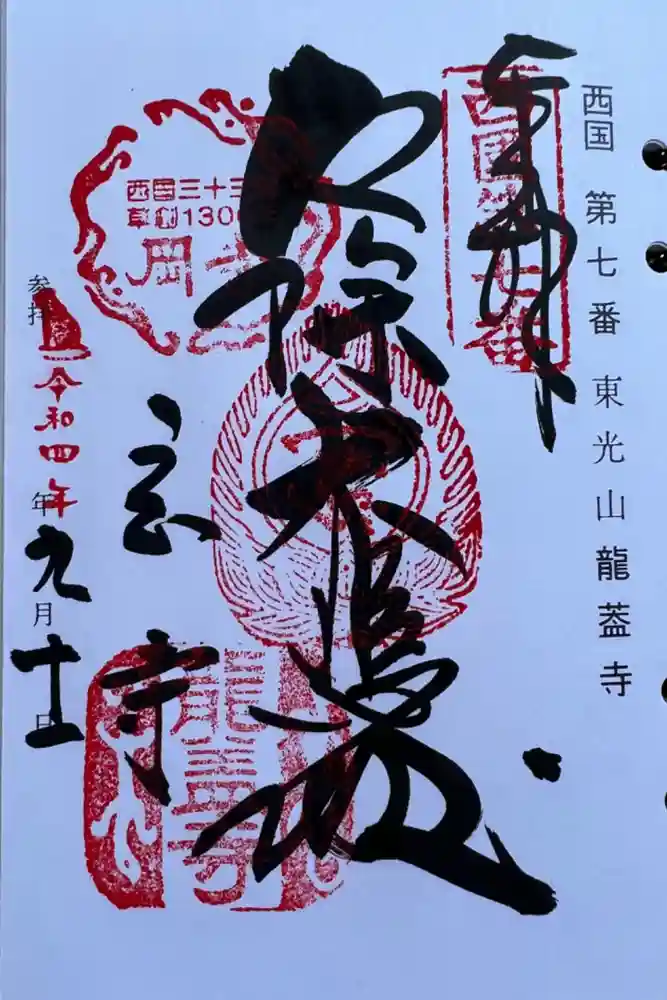 西国 第七番 東光山 龍蓋寺
奉拝
西国第七番
厄除大悲殿
西国三十三
草創130
岡寺
寺
龍蓋寺
参拝 令和四年九月十一日